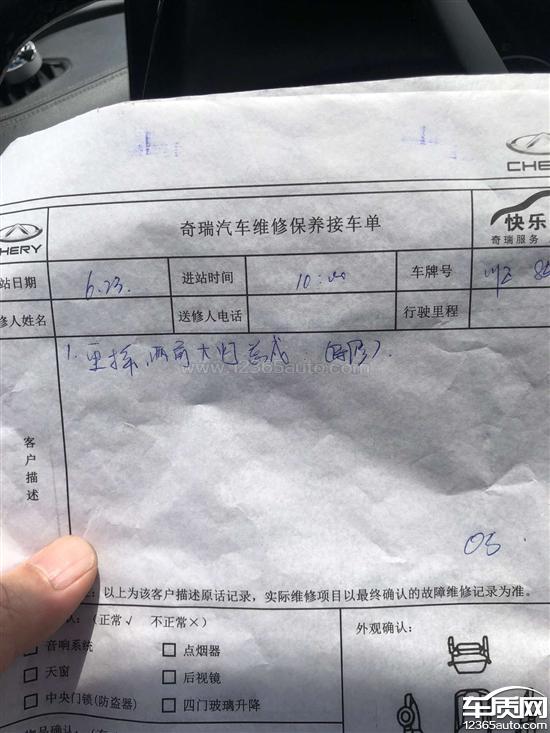 CHERY
CHERY
奇瑞汽车维修保养接车单
快乐
奇瑞服务
站日期 6.23. 进站时间 10:00 车牌号
修人姓名 送修人电话 行驶里程
客户描述
1. 更换两前大灯总成
www.12365auto.com
05
：以上为该客户描述原话记录，实际维修项目以最终确认的故障维修记录为准。
认：(正常√ 不正常×) 外观确认：
音响系统 点烟器
天窗 后视镜
中央门锁(防盗器) 四门玻璃升降
物品确认：
车质网
12365auto.com